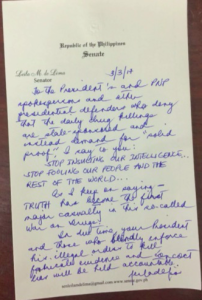 Republic of the Philippines
Senate
Leila M. de Lima
Senator
3/3/17
To the President's and PNP
spokesperson and other
presidential defenders who deny
that the daily drug killings
are state-sponsored and
instead demand for "solid
proof", I say to you:
STOP INSULTING OUR INTELLIGENCE...
STOP FOOLING OUR PEOPLE AND THE
REST OF THE WORLD...
As I keep on saying —
TRUTH has become the first
major casualty in this so-called
war on drugs!
In due time, your President
and those who blindly enforce
his illegal orders to kill,
fabricate evidence and
lies will be held accountable.